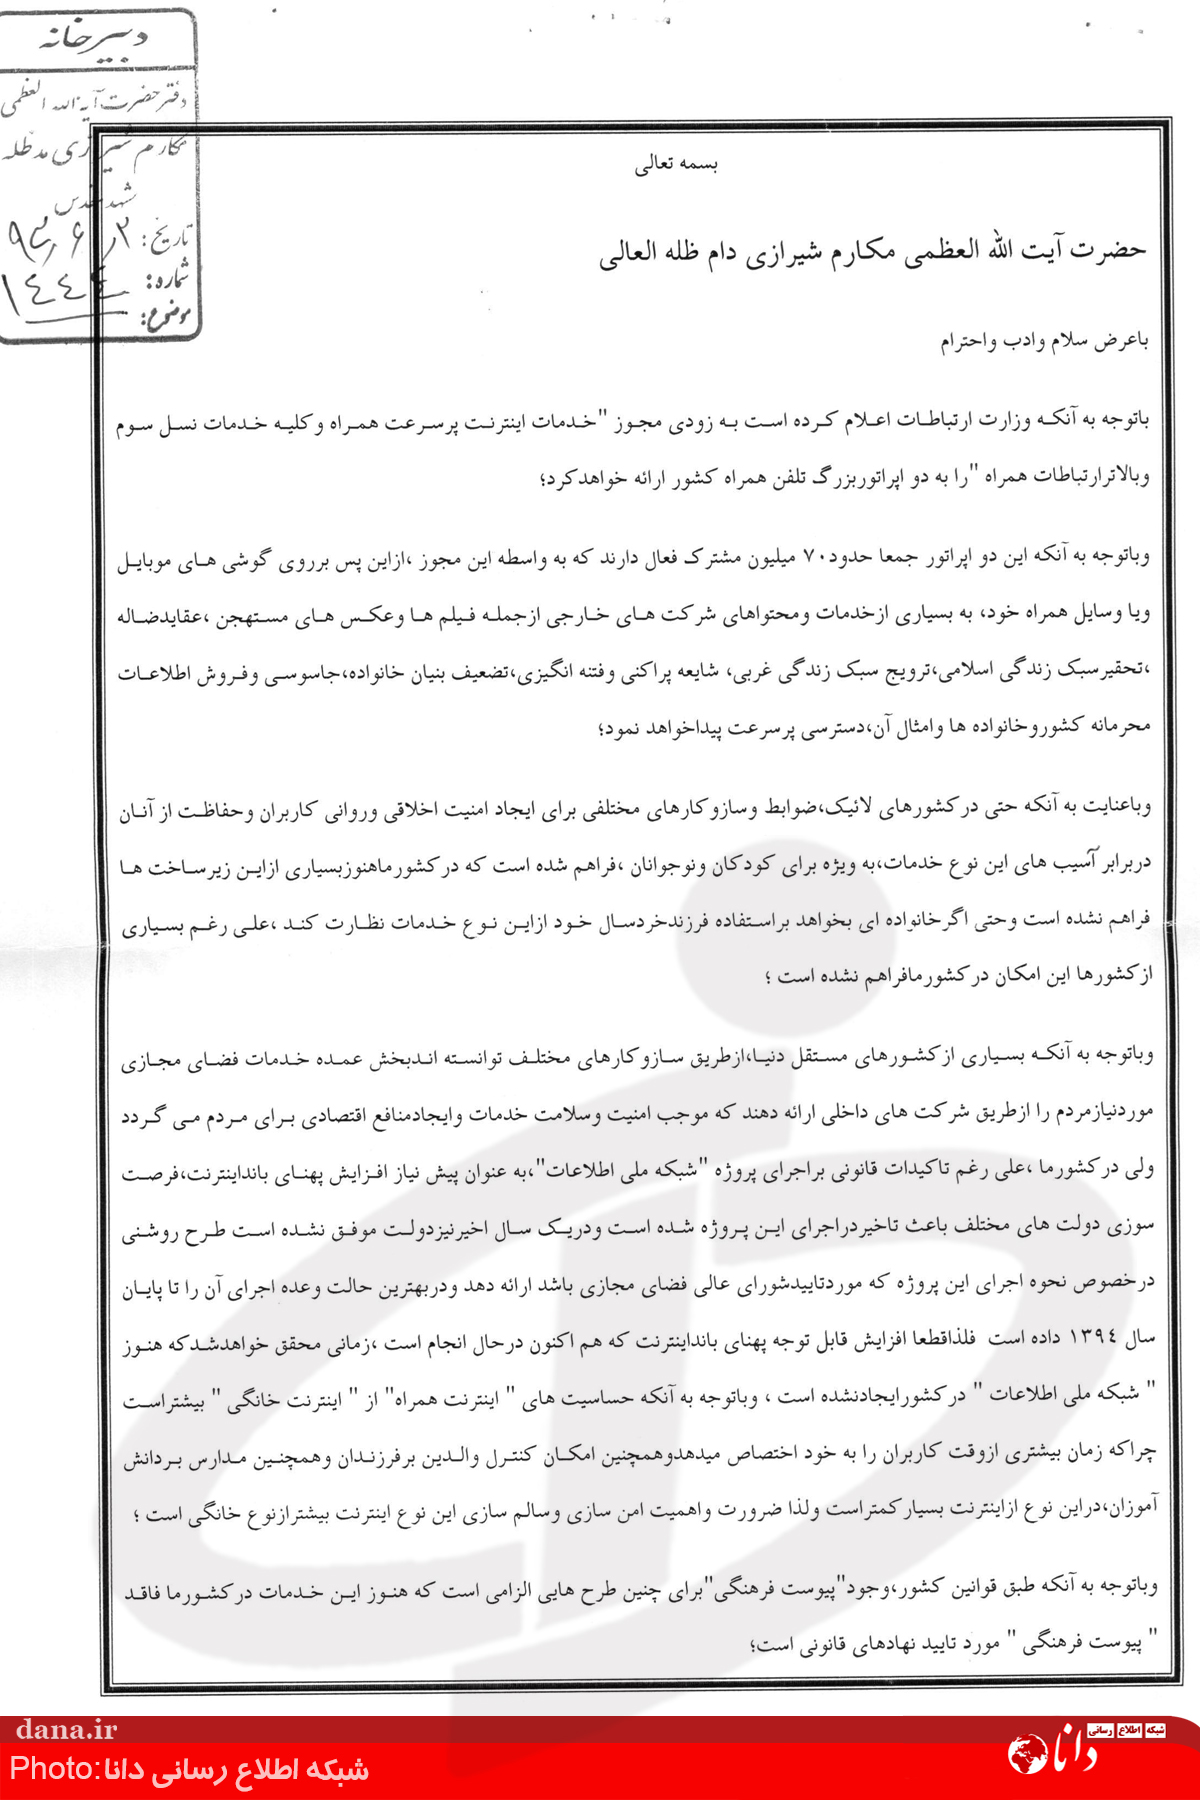 دبیرخانه
دفتر حضرت آیة الله العظمی
مکارم شیرازی مدظله
مشهد مقدس
تاریخ: ۹۳٫۶٫۲
شماره: ۱۴۴۴
موضوع:
بسمه تعالی
حضرت آیت الله العظمی مکارم شیرازی دام ظله العالی
باعرض سلام وادب واحترام
باتوجه به آنکه وزارت ارتباطات اعلام کرده است به زودی مجوز "خدمات اینترنت پرسرعت همراه وکلیه خدمات نسل سوم
وبالاترارتباطات همراه "را به دو اپراتوربزرگ تلفن همراه کشور ارائه خواهدکرد؛
وباتوجه به آنکه این دو اپراتور جمعا حدود۷۰ میلیون مشترک فعال دارند که به واسطه این مجوز ،ازاین پس برروی گوشی های موبایل
ویا وسایل همراه خود، به بسیاری ازخدمات ومحتواهای شرکت های خارجی ازجمله فیلم ها وعکس های مستهجن ،عقایدضاله
،تحقیرسبک زندگی اسلامی،ترویج سبک زندگی غربی، شایعه پراکنی وفتنه انگیزی،تضعیف بنیان خانواده،جاسوسی وفروش اطلاعات
محرمانه کشوروخانواده ها وامثال آن،دسترسی پرسرعت پیداخواهد نمود؛
وباعنایت به آنکه حتی درکشورهای لائیک،ضوابط وسازوکارهای مختلفی برای ایجاد امنیت اخلاقی وروانی کاربران وحفاظت از آنان
دربرابر آسیب های این نوع خدمات،به ویژه برای کودکان ونوجوانان ،فراهم شده است که درکشورماهنوزبسیاری ازاین زیرساخت ها
فراهم نشده است وحتی اگرخانواده ای بخواهد براستفاده فرزندخردسال خود ازاین نوع خدمات نظارت کند ،علی رغم بسیاری
ازکشورها این امکان درکشورمافراهم نشده است ؛
وباتوجه به آنکه بسیاری ازکشورهای مستقل دنیا،ازطریق سازوکارهای مختلف توانسته اندبخش عمده خدمات فضای مجازی
موردنیازمردم را ازطریق شرکت های داخلی ارائه دهند که موجب امنیت وسلامت خدمات وایجادمنافع اقتصادی برای مردم می گردد
ولی درکشورما ،علی رغم تاکیدات قانونی براجرای پروژه "شبکه ملی اطلاعات"،به عنوان پیش نیاز افزایش پهنای بانداینترنت،فرصت
سوزی دولت های مختلف باعث تاخیردراجرای این پروژه شده است ودریک سال اخیرنیزدولت موفق نشده است طرح روشنی
درخصوص نحوه اجرای این پروژه که موردتاییدشورای عالی فضای مجازی باشد ارائه دهد ودربهترین حالت وعده اجرای آن را تا پایان
سال ۱۳۹٤ داده است فلذاقطعا افزایش قابل توجه پهنای بانداینترنت که هم اکنون درحال انجام است ،زمانی محقق خواهدشدکه هنوز
" شبکه ملی اطلاعات " درکشورایجادنشده است ، وباتوجه به آنکه حساسیت های " اینترنت همراه" از " اینترنت خانگی " بیشتراست
چراکه زمان بیشتری ازوقت کاربران را به خود اختصاص میدهدوهمچنین امکان کنترل والدین برفرزندان وهمچنین مدارس بردانش
آموزان،دراین نوع ازاینترنت بسیارکمتراست ولذا ضرورت واهمیت امن سازی وسالم سازی این نوع اینترنت بیشترازنوع خانگی است ؛
وباتوجه به آنکه طبق قوانین کشور،وجود"پیوست فرهنگی"برای چنین طرح هایی الزامی است که هنوز این خدمات درکشورما فاقد
" پیوست فرهنگی " مورد تایید نهادهای قانونی است؛
dana.ir
Photo:شبکه اطلاع رسانی دانا
شبکه اطلاع رسانی
دانا